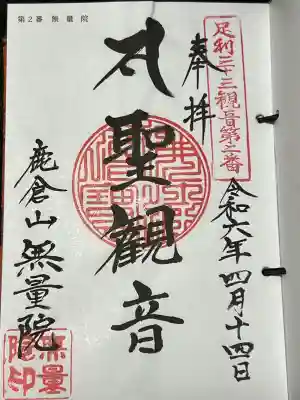 第2番 無量院
足利三十三観音第二番
奉拝
令和六年四月十四日
聖観音
鹿倉山 無量院
無量
院印